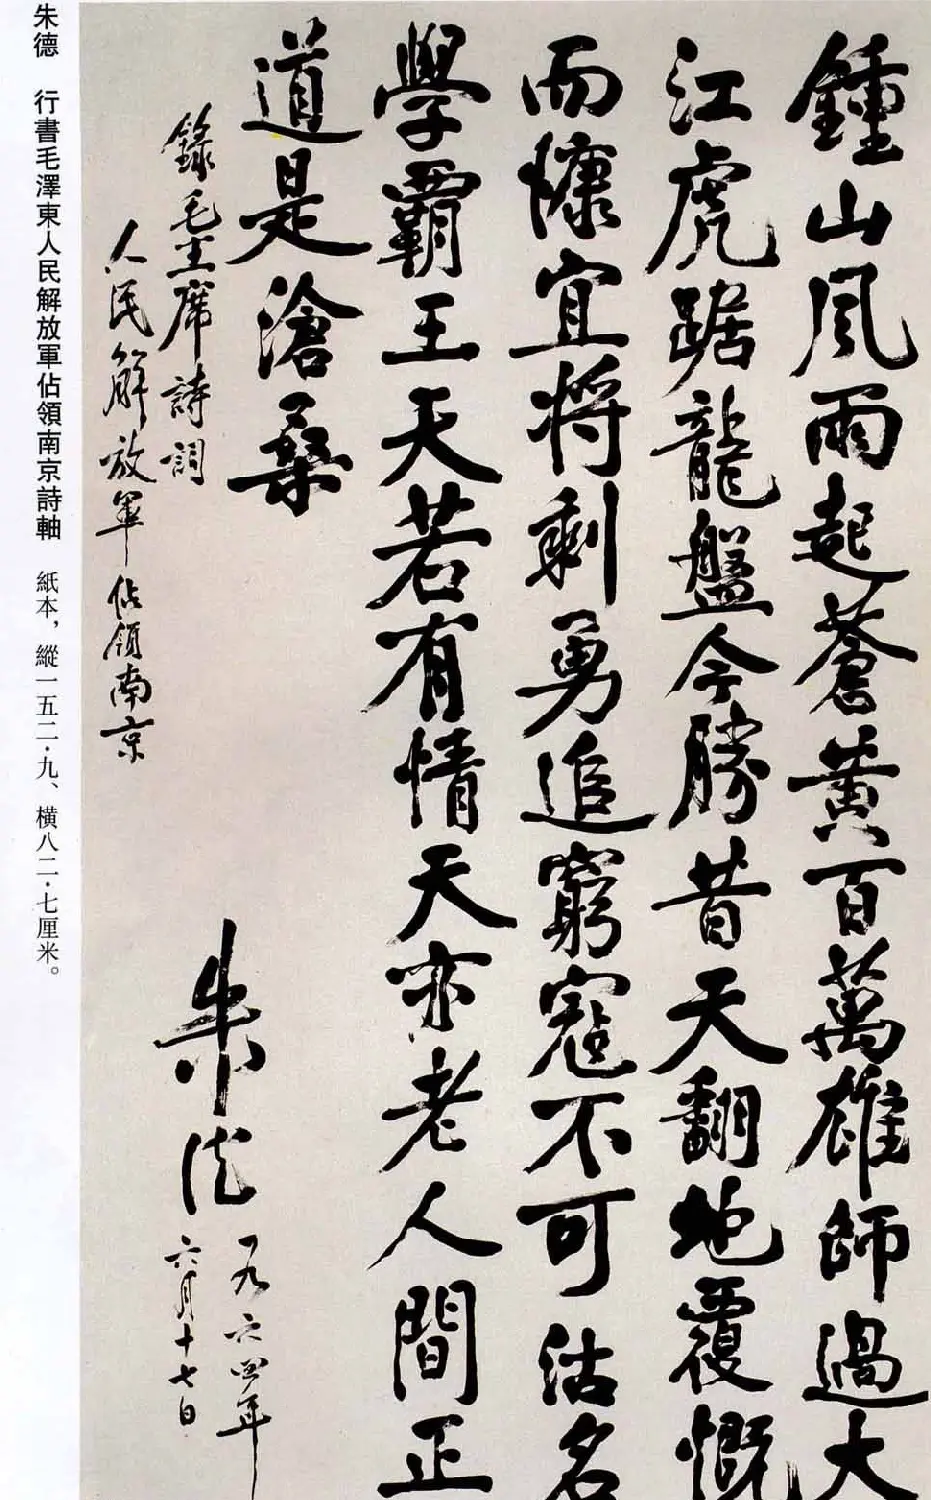 鍾山風雨起蒼黃百萬雄師過大
江虎踞龍盤今勝昔天翻地覆慨
而慷宜将剩勇追窮寇不可沽名
學霸王天若有情天亦老人間正
道是滄桑
錄毛主席詩詞
人民解放軍佔領南京
朱德
一九六四年
六月十七日
朱德 行書毛澤東人民解放軍佔領南京詩軸 紙本，縱一五二·九、橫八二·七厘米。